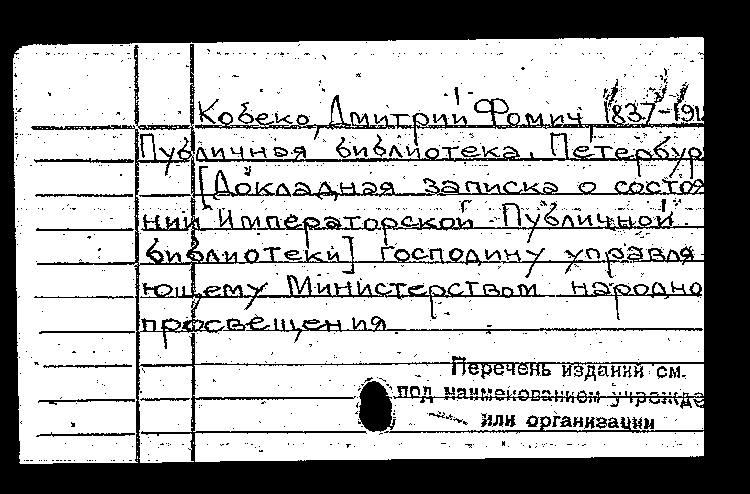 Кобеко, Дмитрий Фомич, 1837-191
Публичная библиотека. Петербур
[Докладная записка о состоя
нии Императорской Публичной
библиотеки] господину управля-
ющему Министерством народно
просвещения.
Перечень изданий см.
под наименованием учрежде
или организации